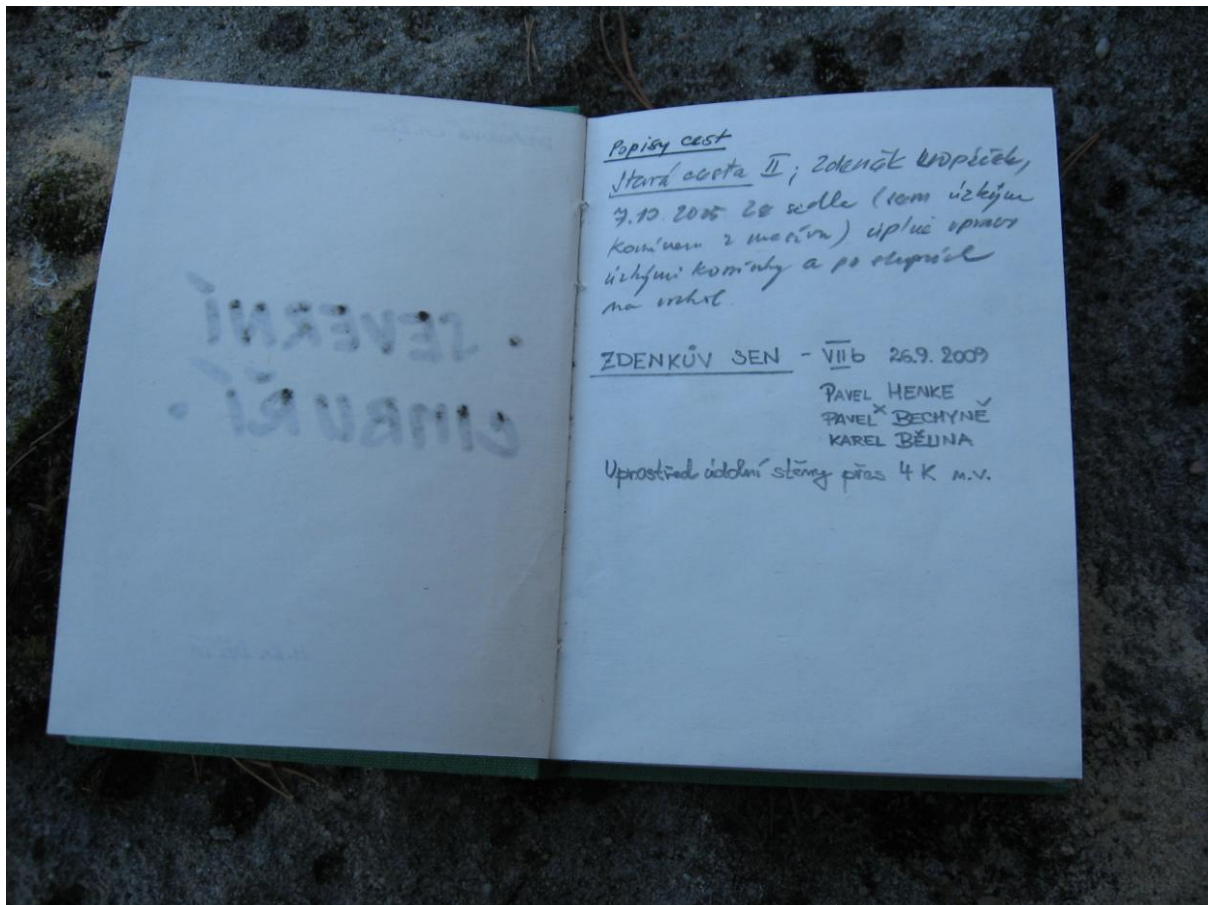 • SEVERNÍ
CIMBUŘÍ •
Popisy cest
Stará cesta II; Zdeněk Kropáček,
7.10.2005 Ze sedla (sem úzkým
komínem z masívu) úplně vpravo
úzkými komínky a po stupních
na vrchol.
ZDENKŮV SEN - VIIb 26.9.2009
PAVEL HENKE
PAVEL BECHYNĚ
KAREL BĚLINA
Uprostřed údolní stěny přes 4 K n.v.